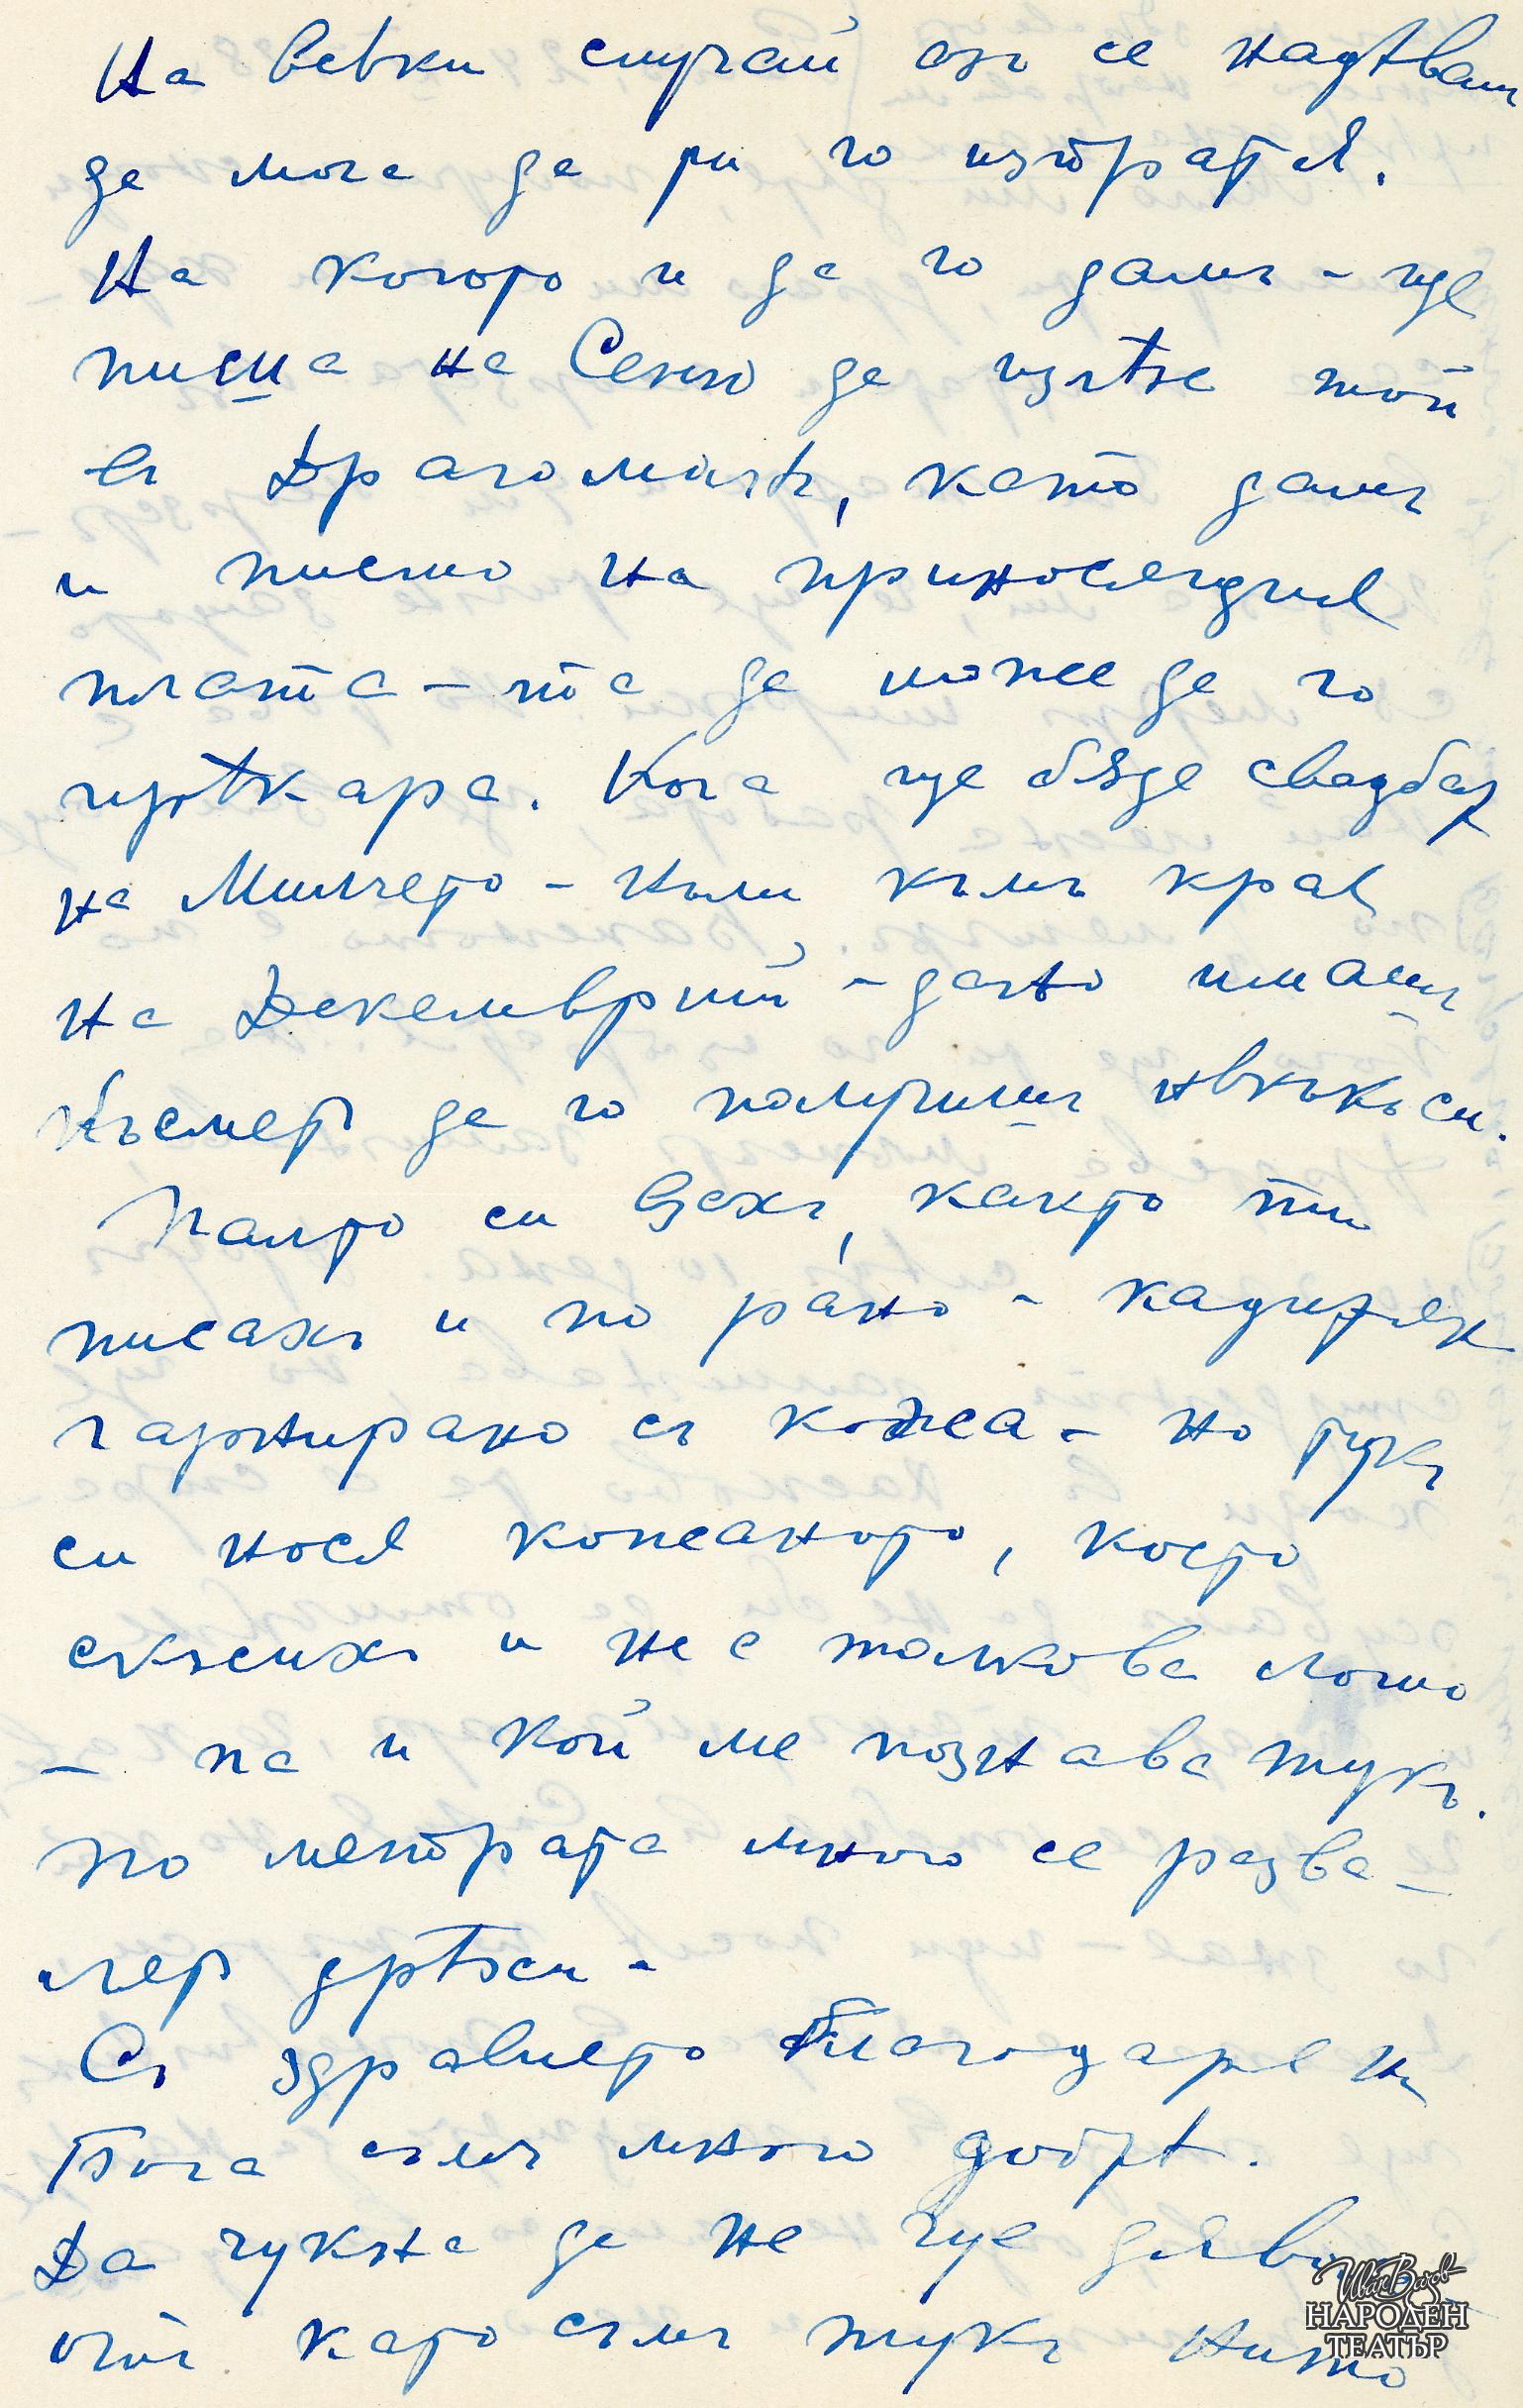 На всѣки случай азъ се надѣвамъ
да мога да ти го изпратя.
На когото и да го дамъ – ще
пиша на Сенно да излѣзе той
въ Драгоманъ, като дамъ
и писмо на приносящия
плата – та да може да го
прѣкара. Кога ще бѫде свадбата
на Милчето – нали към края
на Декемврий – дано имашъ
Късмет да го получишъ нѣкъкъ си.
Палто си взехъ, както ти
писахъ и по рано – кадифян
гарнирано съ кожа – но тукъ
си нося кожаното, което
скъсихъ и не е толкова лошо
– па и кой ме познава тукъ.
По метрата много се разва-
лят дрѣхи –
Съ здравието благодаря на
Бога съмъ много добрѣ.
Да чукна да не чуе дявола
отъ като съмъ тукъ нито
Иван Вазов
НАРОДЕН
ТЕАТЪР